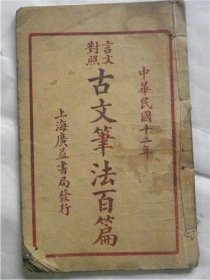 中華民國十二年
言文
對照
古文筆法百篇
上海廣益書局發行